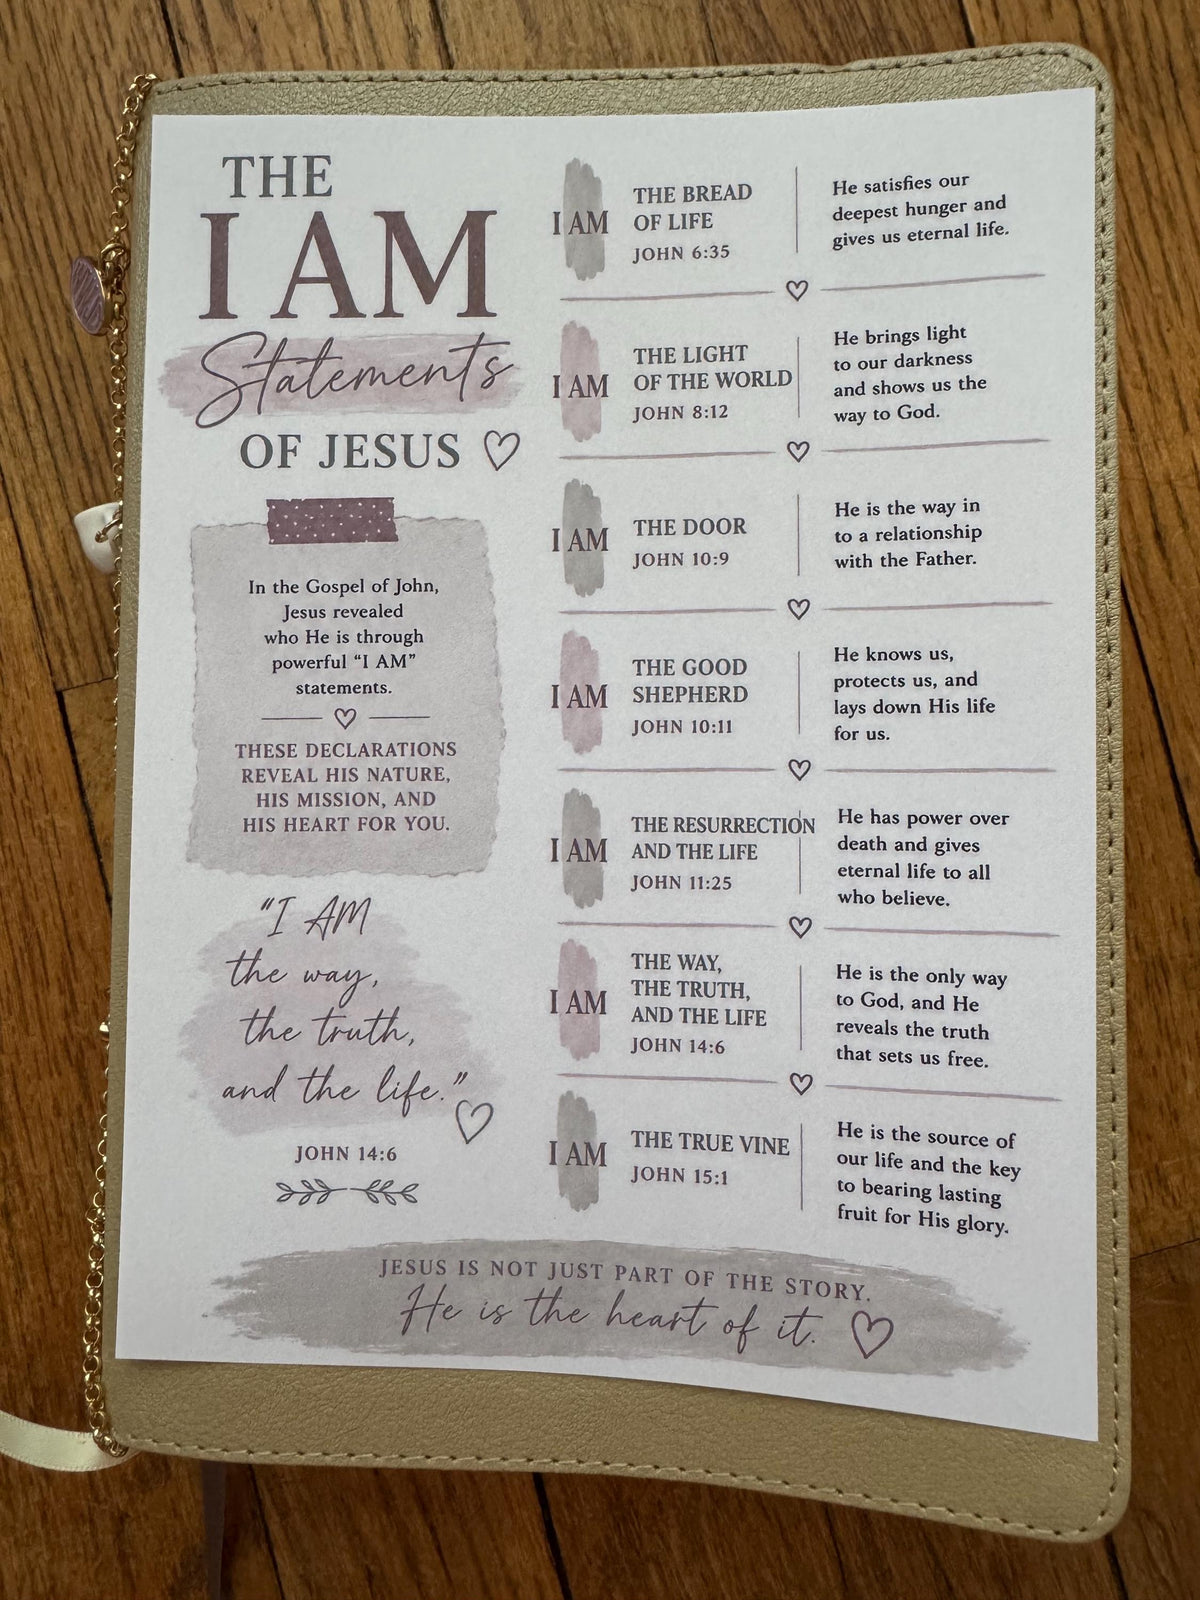 THE
I AM
Statements
OF JESUS
In the Gospel of John,
Jesus revealed
who He is through
powerful “I AM”
statements.
THESE DECLARATIONS
REVEAL HIS NATURE,
HIS MISSION, AND
HIS HEART FOR YOU.
“I AM
the way,
the truth,
and the life.”
JOHN 14:6
I AM
THE BREAD
OF LIFE
JOHN 6:35
He satisfies our
deepest hunger and
gives us eternal life.
I AM
THE LIGHT
OF THE WORLD
JOHN 8:12
He brings light
to our darkness
and shows us the
way to God.
I AM
THE DOOR
JOHN 10:9
He is the way in
to a relationship
with the Father.
I AM
THE GOOD
SHEPHERD
JOHN 10:11
He knows us,
protects us, and
lays down His life
for us.
I AM
THE RESURRECTION
AND THE LIFE
JOHN 11:25
He has power over
death and gives
eternal life to all
who believe.
I AM
THE WAY,
THE TRUTH,
AND THE LIFE
JOHN 14:6
He is the only way
to God, and He
reveals the truth
that sets us free.
I AM
THE TRUE VINE
JOHN 15:1
He is the source of
our life and the key
to bearing lasting
fruit for His glory.
JESUS IS NOT JUST PART OF THE STORY.
He is the heart of it.